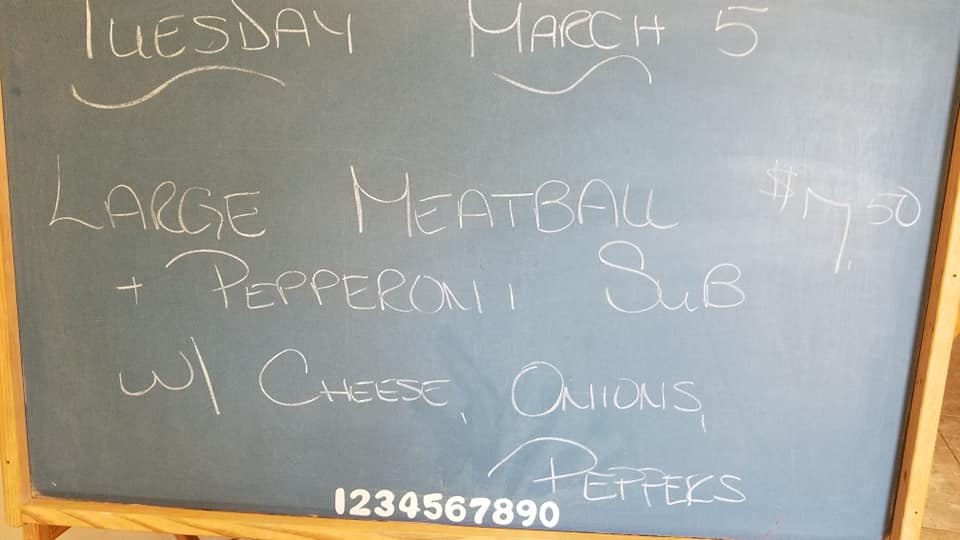 TUESDAY MARCH 5
LARGE MEATBALL $7.50
+ PEPPERONI SUB
W/ CHEESE, ONIONS,
PEPPERS
1234567890